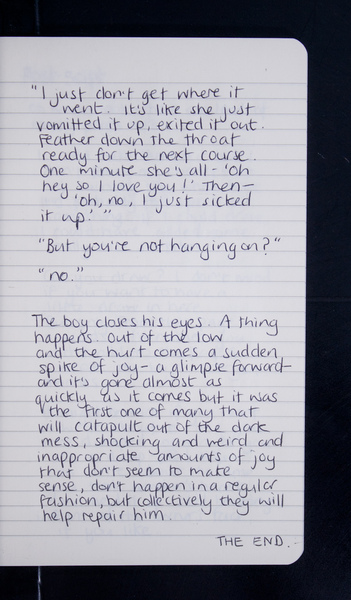 "I just don't get where it
went. It's like she just
vomitted it up, exited it out.
Feather down the throat
ready for the next course.
One minute she's all - 'Oh
hey so I love you!' Then -
'oh, no, I just sicked
it up.' "
"But you're not hanging on?"
"no."
The boy closes his eyes. A thing
happens. Out of the low
and the hurt comes a sudden
spike of joy - a glimpse forward -
and it's gone almost as
quickly as it comes but it was
the first one of many that
will catapult out of the dark
mess, shocking and weird and
inappropriate amounts of joy
that don't seem to make
sense, don't happen in a regular
fashion, but collectively they will
help repair him.
THE END.